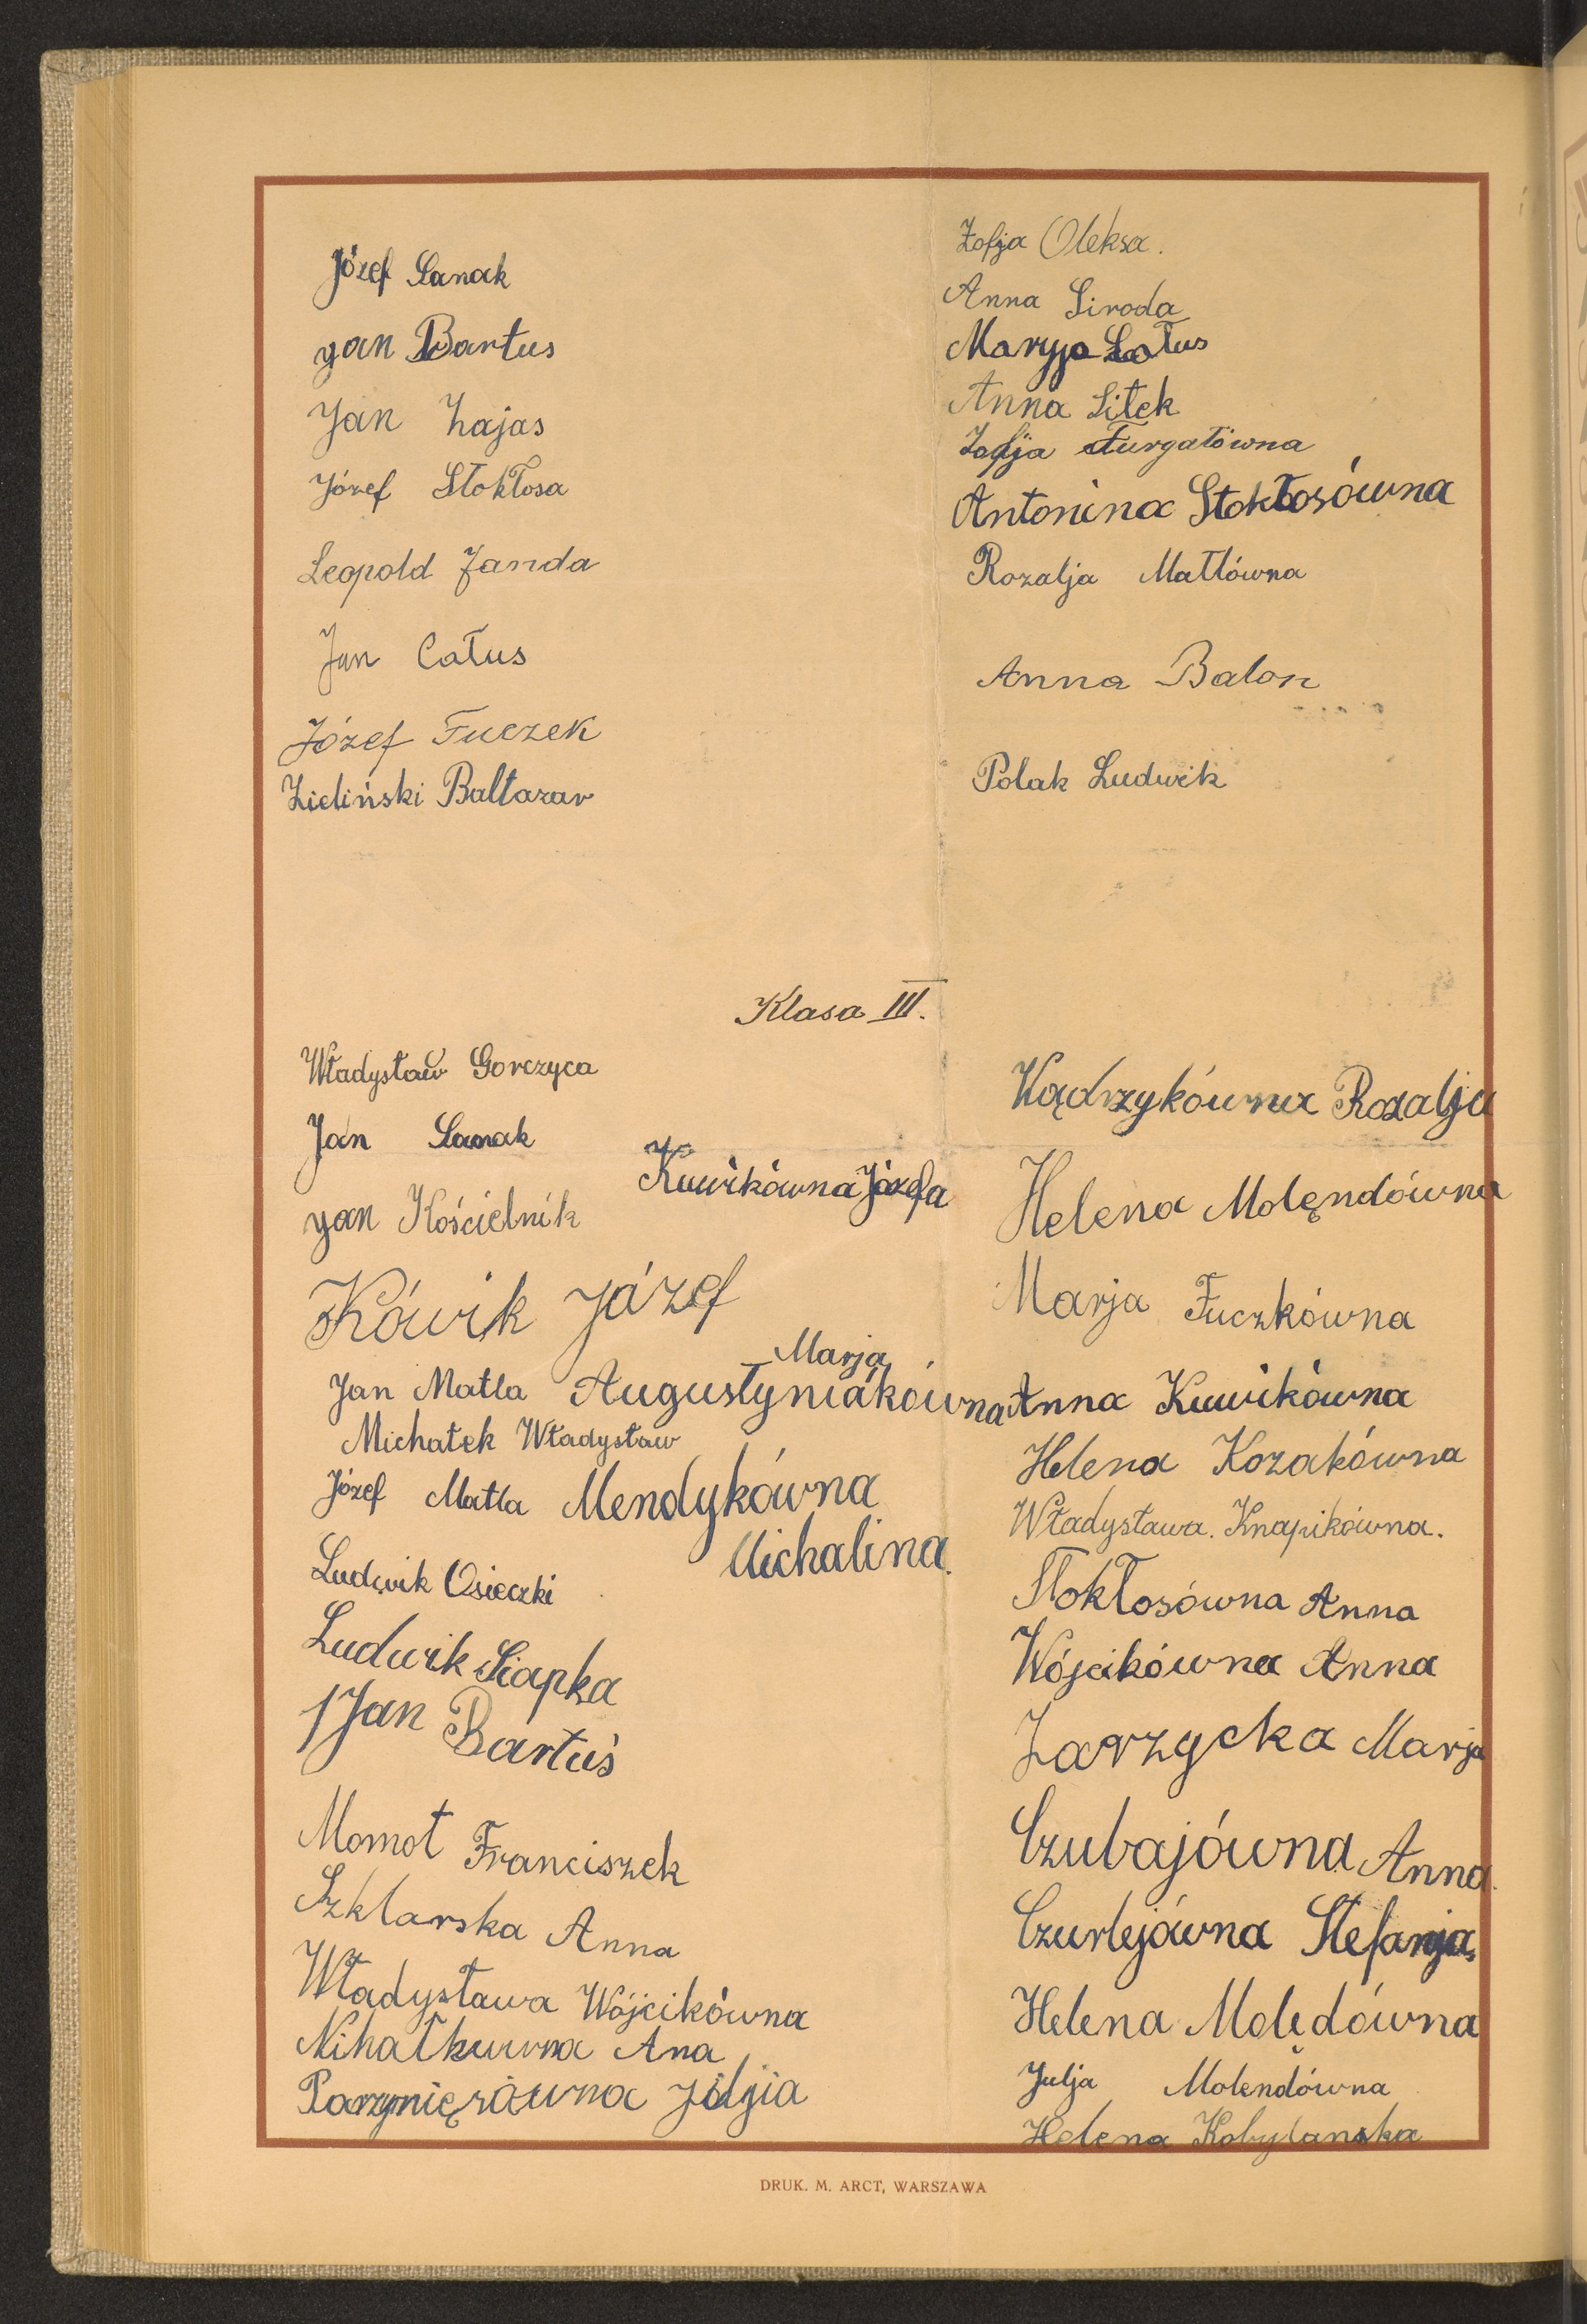 Józef Sanak
Jan Bartus
Jan Zajas
Józef Stokłosa
Leopold Janda
Jan Całus
Józef Fuczek
Zieliński Baltazar
Zofja Oleksa.
Anna Siroda
Maryja Całus
Anna Sitek
Zofja Furgałówna
Antonina Stokłosówna
Rozalja Matlówna
Anna Balon
Polak Ludwik
Klasa III.
Władysław Gorczyca
Jan Sanak
Jan Kościelnik
Kówik Józef
Jan Matla
Michałek Władysław
Józef Matla
Ludwik Osieczki
Ludwik Siapka
Jan Bartuś
Momot Franciszek
Szklarska Anna
Władysława Wójcikówna
Nihałkuwna Ana
Parzymięrówna
Kuwikówna Józefa
Marja
Augustyniakówna
Mendykówna
Michalina.
Kądrzykówna Rozalja
Helena Molęndówna
Marja Fuczkówna
Anna Kuwikówna
Helena Kozakówna
Władysława. Knapikówna.
Stokłosówna Anna
Wójcikówna Anna
Zarzycka Marja
Czubajówna Anna.
Czurlejówna Stefanja,
Helena Molędówna
Julja Molendówna
Helena Kobylanska
DRUK. M. ARCT, WARSZAWA